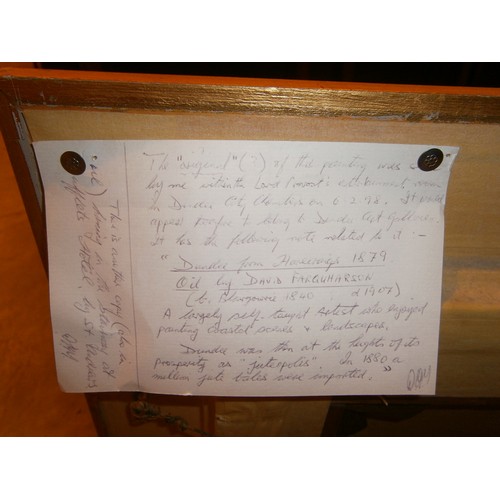 The "original" (?) of this painting was
by me within the Lord Provost's entertainment room
in Dundee City Chambers on 6.2.98. It would
appear to belong to Dundee Art Galleries.
It has the following note related to it :-
" Dundee from 1879
Oil by DAVID FARQUHARSON
(b. Blairgowrie 1840. d 1907)
A largely self-taught artist who enjoyed
painting coastal scenes & landscapes.
Dundee was then at the height of its
prosperity as "Juteopolis". In 1880 a
million jute bales were imported. "
This is another copy (also in
oil) hanging in the at
by St Andrews